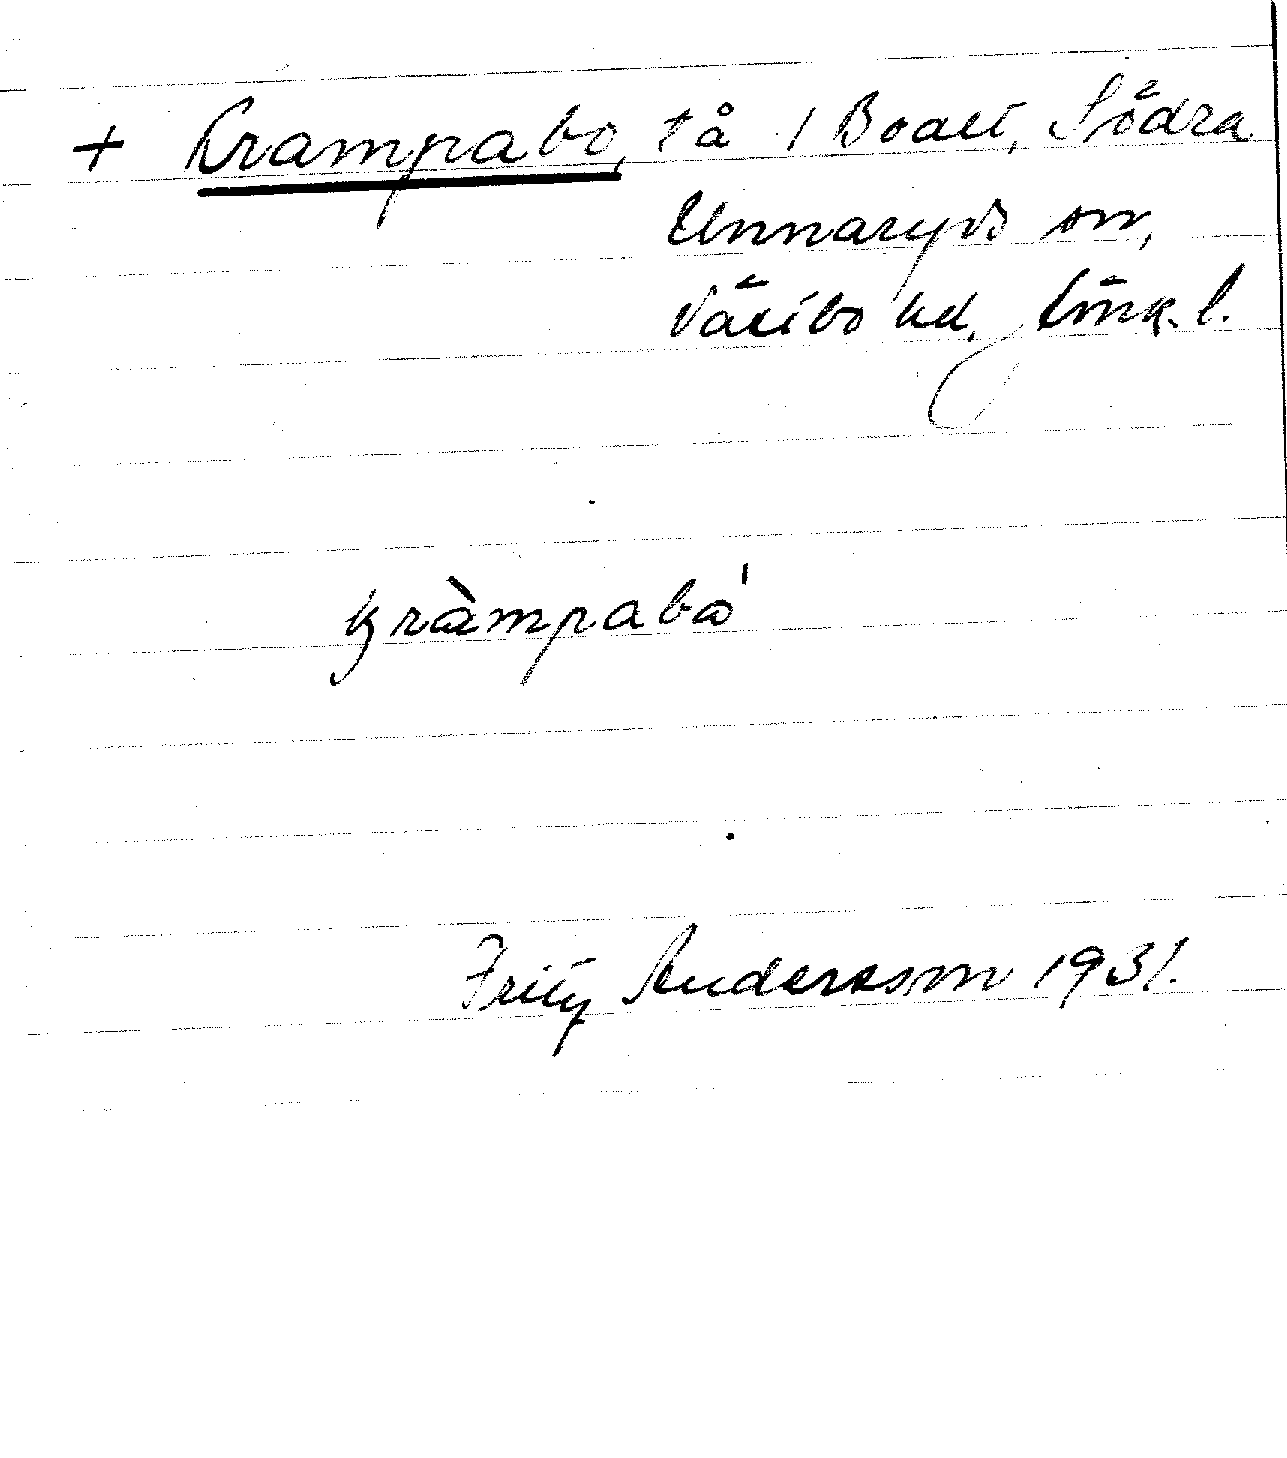 + Krampabo, tå i Boalt, Södra
Unnaryds sn,
Västbo hd, Jönk. l.
kràmpabω̍
Fritz Andersson 1931.